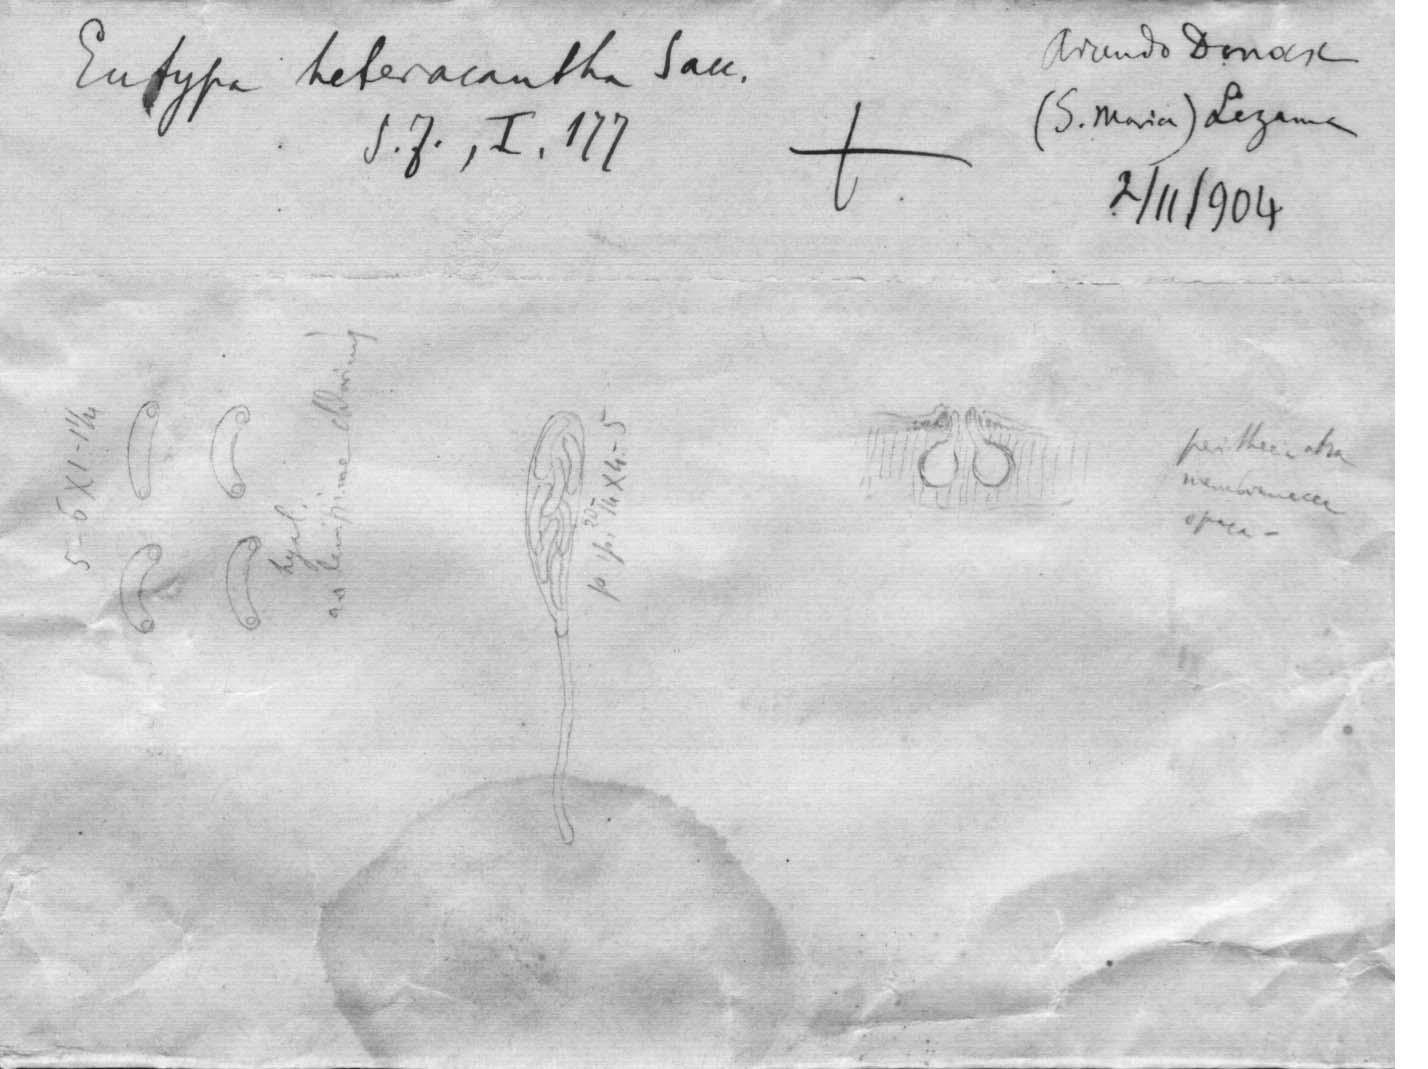 Eutypa heteracantha Sacc.
S.F., I. 177
Arundo Donax
(S. Maria) Lezama
2/11/904
5-6 X 1-1¼
hyal.
p. sp. 20-14 X 4-5
perithecia atra
membranacea
opaca -